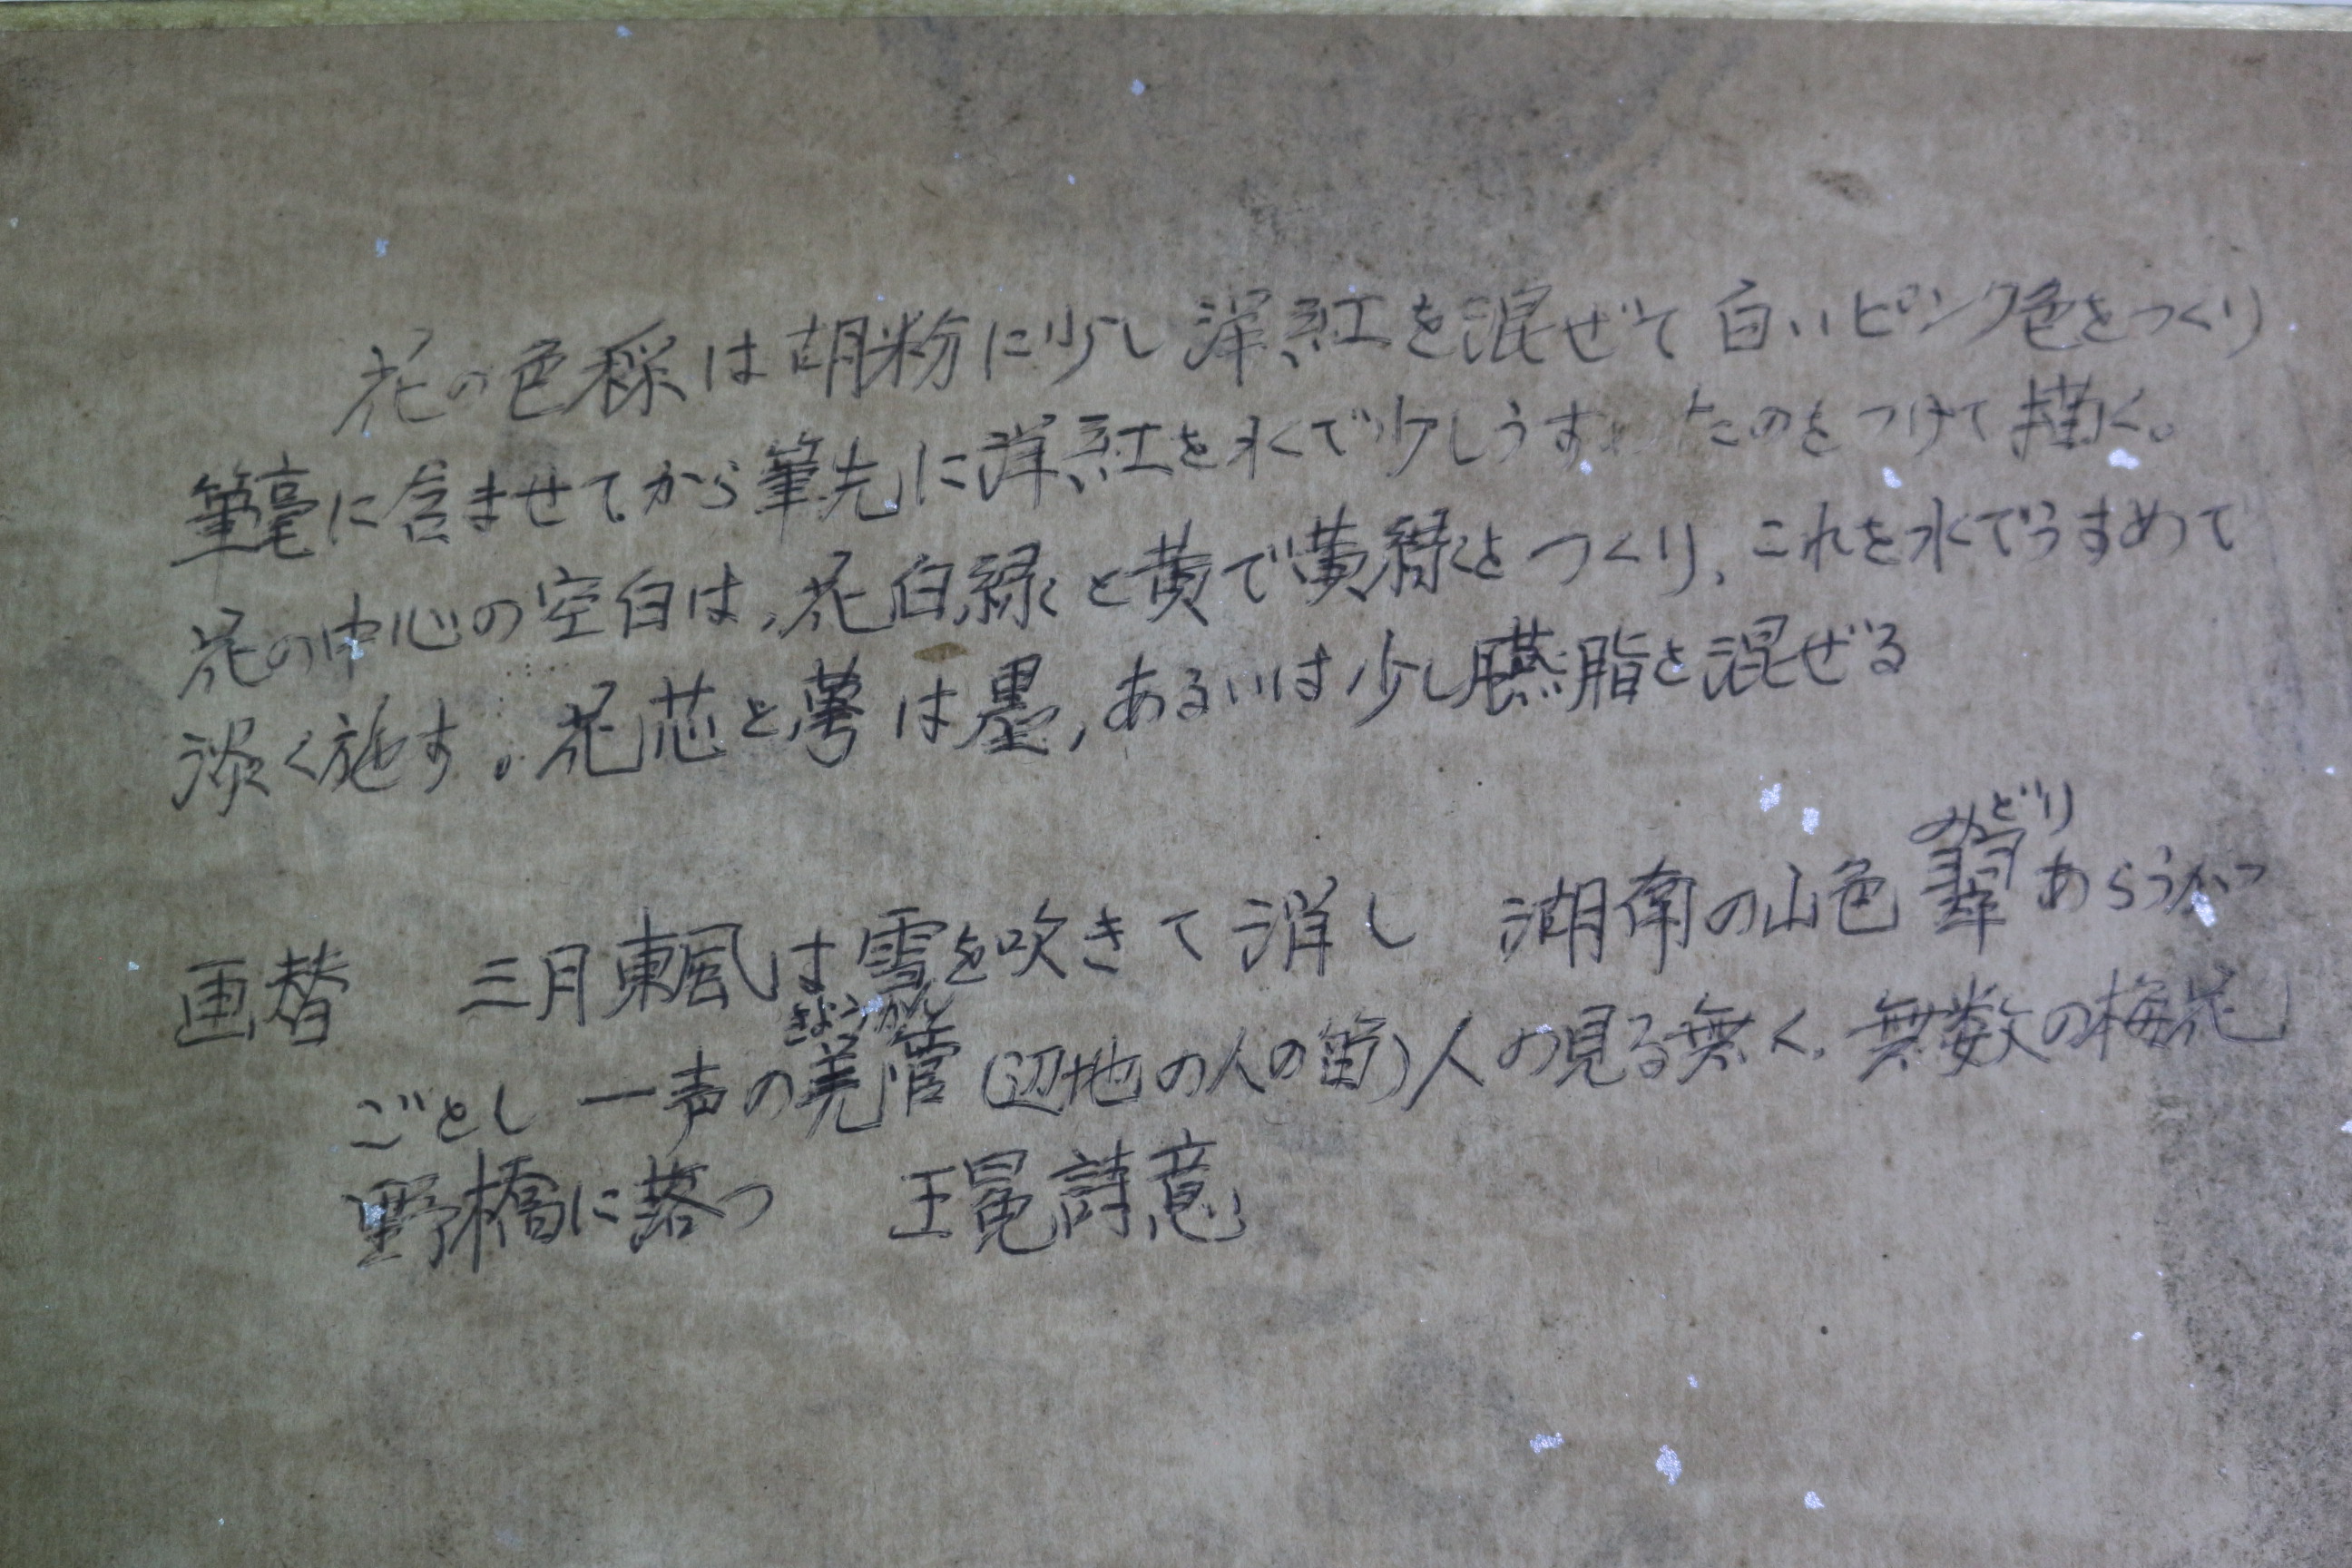 花の色彩は胡粉に少し洋紅を混ぜて白いピンク色をつくり
筆毫に含ませてから筆先に洋紅を水で少しうす たのをつけて描く。
花の中心の空白は、花白緑と黄で黄緑をつくり、これを水でうすめて
淡く施す。花芯と萼は墨,あるいは少し臙脂を混ぜる
みどり
画替 三月東風は雪を吹きて消し 湖南の山色翠あらうがつ
きょうかん
ごとし 一声の羌管(辺地の人の笛)人の見る無く、無数の梅花
野橋に落つ 王冕詩意